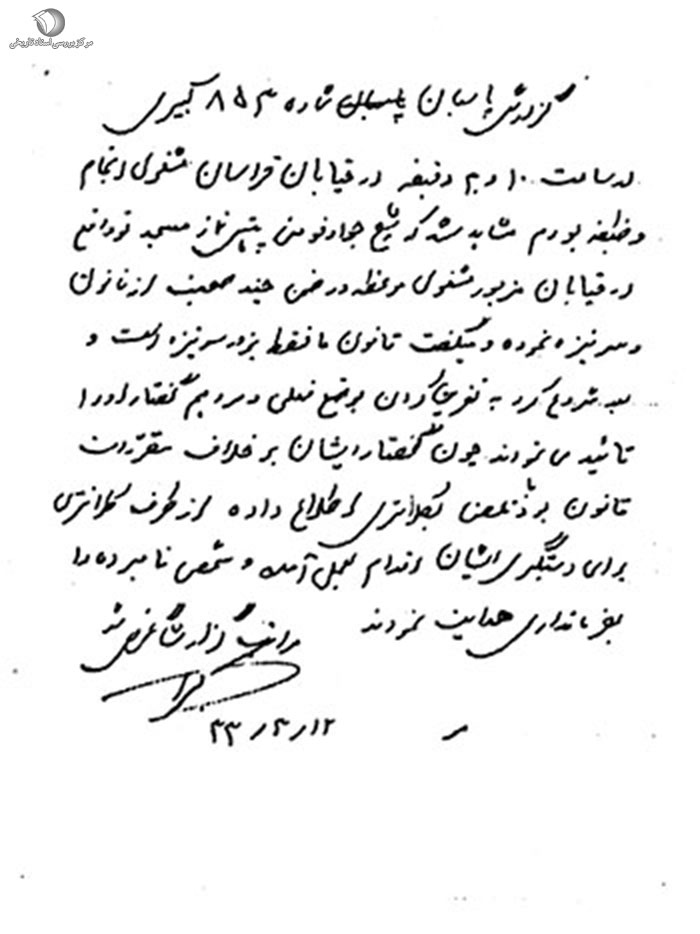 مرکز بررسی اسناد تاریخی
گزارش پاسبان پاسبان شماره ۸۵۳ کبیری
در ساعت ۱۰ و ۲۰ دقیقه در خیابان خراسان مشغول انجام
وظیفه بودم مشاهده شد که شیخ جواد فومنی پیش نماز مسجد نو واقع
در خیابان مزبور مشغول موعظه در ضمن چند صحبت از قانون
و سر نیزه نموده و میگفت قانون ما فقط بزور سر نیزه است و
بعد شروع کرد به تنقید کردن بوضع فعلی و مردم گفتار او را
تائید می نمودند چون گفتار ایشان بر خلاف مقررات
قانون بود بکلانتری اطلاع داده از طرف کلانتری
برای دستگیری ایشان اقدام بعمل آمده و شخص نامبرده را
بفرمانداری هدایت نمودند
مراتب گزارشاً عرض شد
۴۳/۳/۱۲